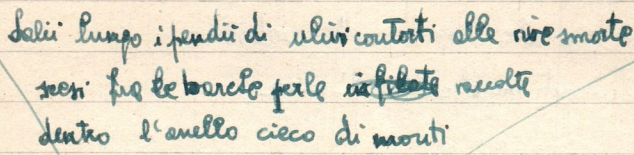 Salii lungo i pendii di ulivi contorti alle rive smorte
scesi fra le barche per le raccolte
dentro l'anello cieco di monti